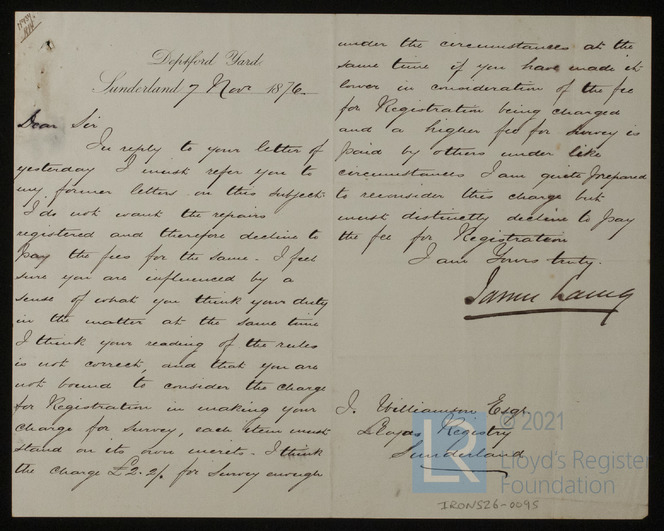 Deptford Yard
Sunderland 7 Nov 1876.
Dear Sir
In reply to your letter of
yesterday I must refer you to
my former letters on this subject.
I do not want the repairs
registered and therefore decline to
pay the fees for the same. I feel
sure you are influenced by a
sense of what you think your duty
in the matter at the same time
I think your reading of the rules
is not correct, and that you are
not bound to consider the charge
for Registration in making your
charge for survey, each item must
stand on its own merits. I think
the charge £2.2/. for survey enough
under the circumstances at the
same time if you have made it
lower in consideration of the fee
for Registration being charged
and a higher fee for survey is
paid by others under like
circumstances I am quite prepared
to reconsider this charge but
must distinctly decline to pay
the fee for Registration
I am Yours truly.
James Laing
J. Williamson Esqr.
Lloyds Registry
Sunderland
© 2021
LR
Lloyd's Register
Foundation
IRON526-0095